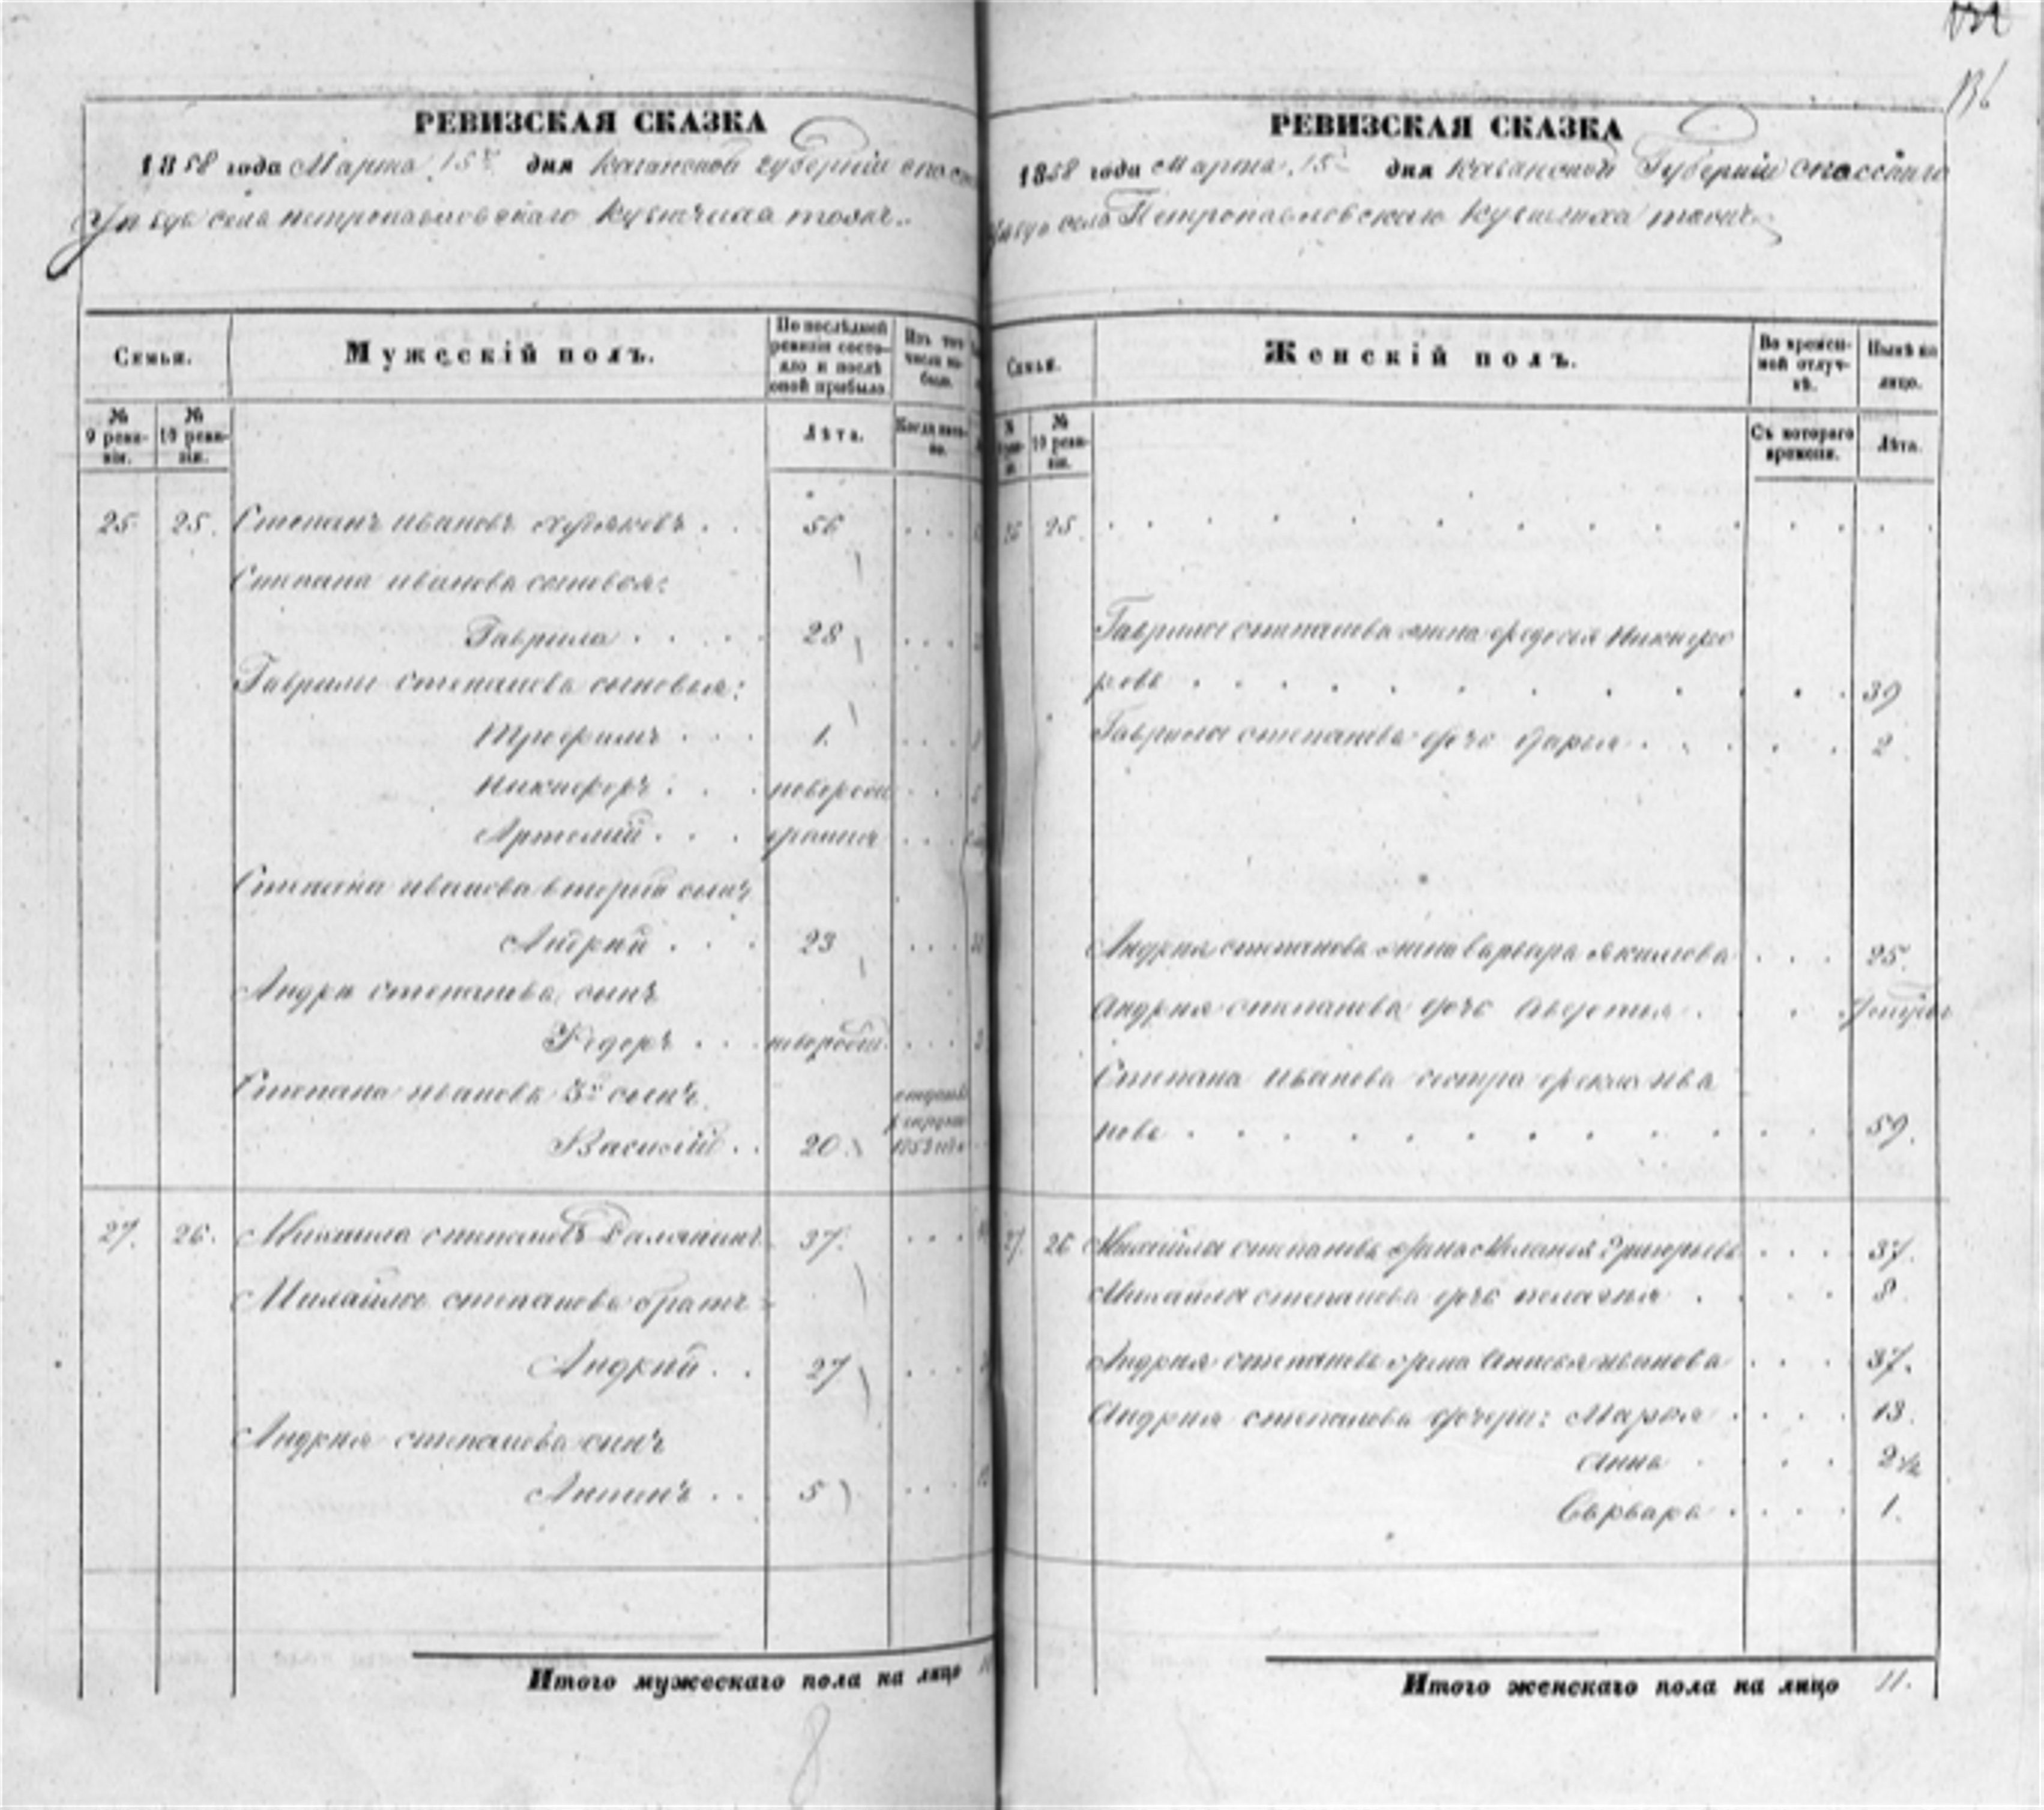 136
РЕВИЗСКАЯ СКАЗКА
1858 года Марта 15 дня Казанской губерніи
села Петропавловскаго Кузнечиха тожъ
Семья.
Мужескій полъ.
По послѣдней ревизіи состояло и послѣ оной прибыло
Изъ того числа выбыло.
№ 9 ревизіи.
№ 10 ревизіи.
Лѣта.
Когда именно.
25 25. Степанъ Ивановъ Худяковъ . . 56
Степана Иванова сыновья:
Гаврила . . . . 28
Гаврилы Степанова сыновья:
Трофимъ . . . 1.
Никифоръ . . .
Артемій . . .
Степана Иванова вторый сынъ
Андрей . . . 23
Андрея Степанова сынъ
Федоръ . . .
Степана Иванова 3й сынъ
Василій . . 20
27. 26. Михаила Степановъ 37.
Михайлы Степанова братъ
Андрей . . 27
Андрея Степанова сынъ
Антонъ . . . 5
Итого мужескаго пола на лицо
РЕВИЗСКАЯ СКАЗКА
1858 года Марта 15 дня Казанской Губерніи Спасскаго
Уѣзда села Петропавловскаго Кузнечиха тожъ
Семья.
Женскій полъ.
Во временной отлучкѣ.
Нынѣ на лицо.
№ 10 ревизіи.
Съ котораго времени.
Лѣта.
25
Гаврилы Степанова жена Федосья Никифо
рова . . . . . 39
Гаврилы Степанова дочь Дарья . . . . 2
Андрея Степанова жена Варвара Якимова . . . 25.
Андрея Степанова дочь Авдотия . . .
Степана Иванова сестра Фекла Ива
нова . . . . . 59.
27. 26 Михайлы Степанова жена Меланья Григорьева . . . 37.
Михайлы Степанова дочь Пелагия . . . . 8
Андрея Степанова жена Иванова . . . 37.
Андрея Степанова дочери: Марья . . . . 13.
Анна . . . . 2 1/2
Варвара . . . . 1.
Итого женскаго пола на лицо 11.